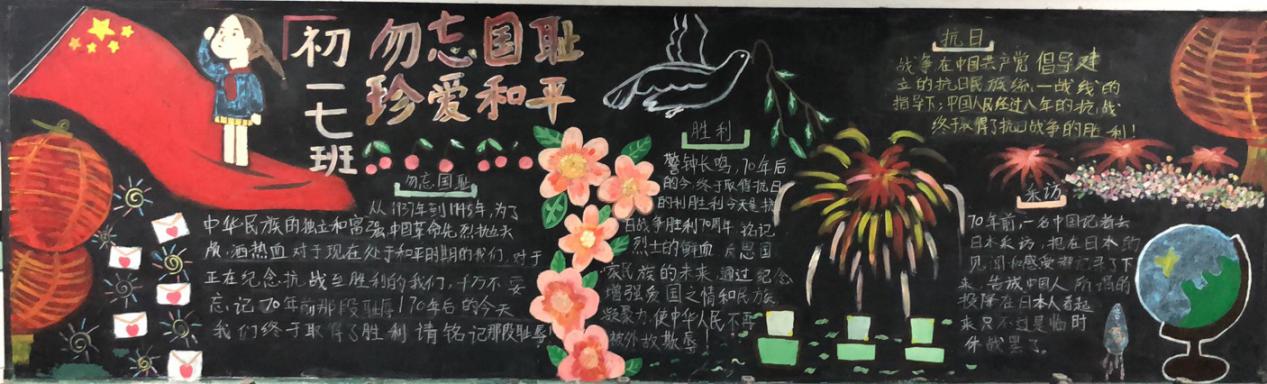 初一七班
勿忘国耻
珍爱和平
勿忘国耻
从1937年到1945年,为了
中华民族的独立和富强中国革命先烈抛头
颅,洒热血对于现在处于和平时期的我们,对于
正在纪念抗战胜利的我们,千万不要
忘记70年前那段耻辱!70年后的今天
我们终于取得了胜利请铭记那段耻辱!
胜利
警钟长鸣,70年后
的今,终于取得抗日
的利胜利今天是抗
日战争胜利70周年 铭记
烈士的鲜血 反思国
家民族的未来,通过纪念
增强爱国之情和民族
凝聚力,使中华人民不再
被外敌欺辱!
抗日
战争在中国共产党倡导建
立的抗日民族统一战线的
指导下,中国人民经过八年的抗战
终于取得了抗日战争的胜利!
采访
70年前,一名中国记者去
日本采访,把在日本的
见闻和感受都记录了下
来,告诫中国人所谓的
投降在日本人看起
来只不过是临时
休战罢了。